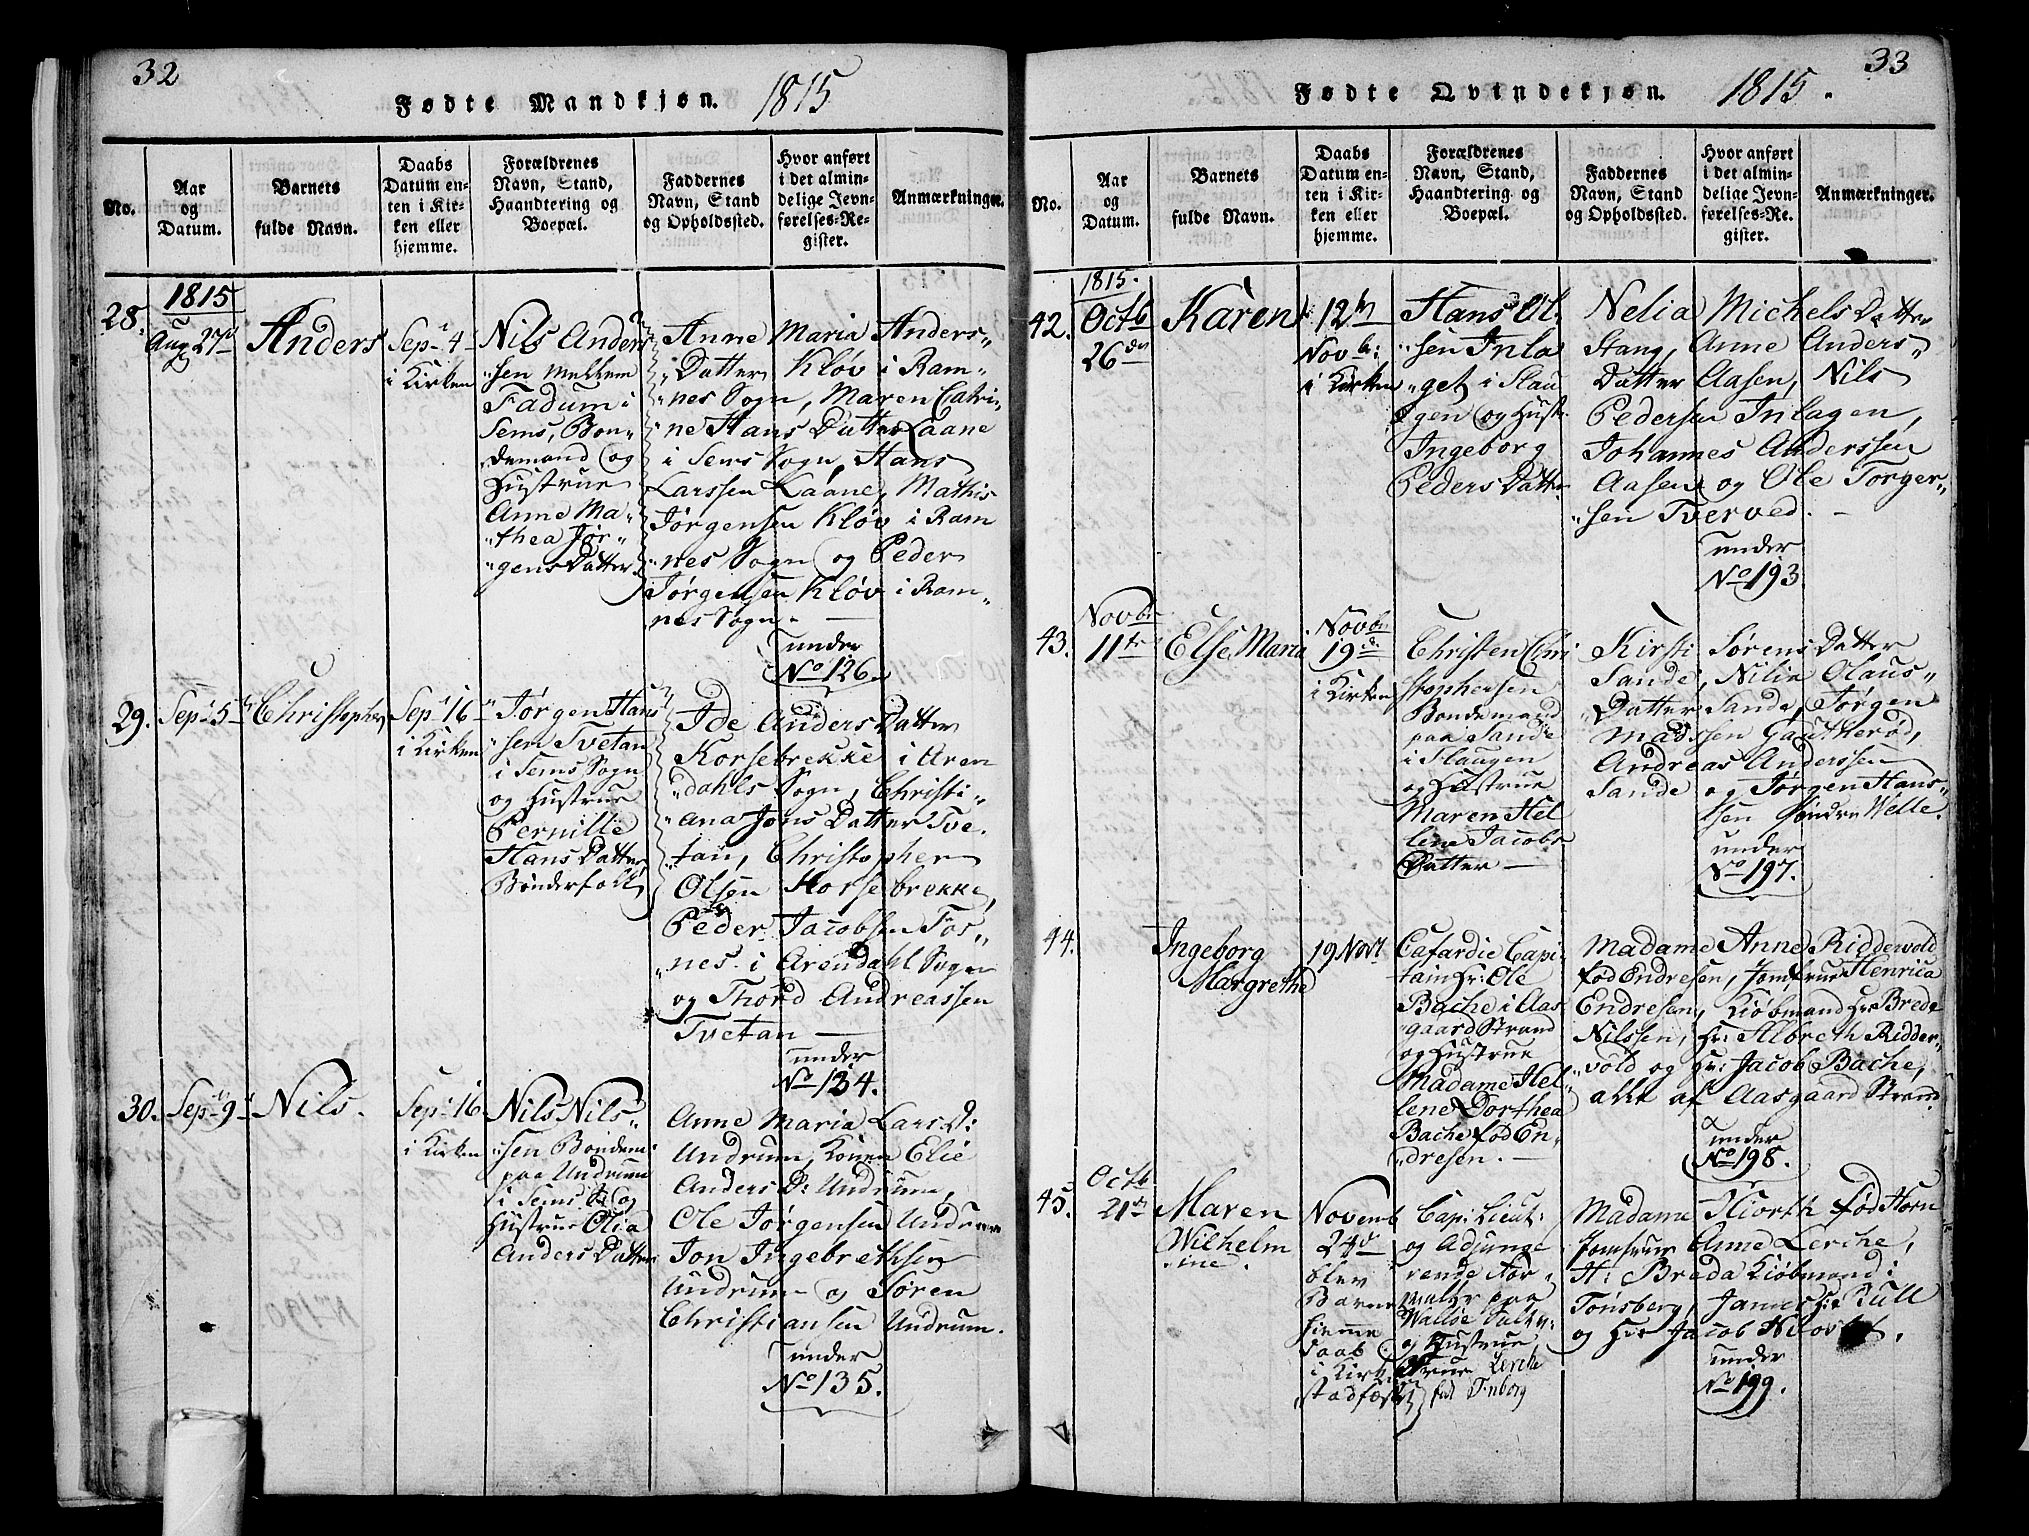 32
Fødte Mandkjøn. 1815
No.
Aar
og
Datum.
Barnets
fulde Navn.
Daabs
Datum en-
ten i Kir-
ken eller
hjemme.
Forældrenes
Navn, Stand,
Haandtering og
Boepæl.
Faddernes
Navn, Stand
og Opholdssted.
Hvor anført
i det almin-
delige Jevn-
førelses-Re-
gister.
Anmærkninger.
28.
1815
Aug 27d
Anders
Sept 4
i Kirken
Nils Anders
"sen mellem
Fadum i
Sems, Bon-
demand og
Hustrue
Anne Ma-
"thea Jör-
"gens Datter
Anne Maria Anders-
"Datter Kløv i Ram-
"nes Sogn, Maren Catri-
"ne Hans Datter Laane
i Sems Sogn, Hans
Larssen Laane, Mathis
Jörgensen Kløv i Ram
"nes Sogn og Peder
Jörgensen Kløv i Ram-
nes Sogn. —
under
No 126.
29.
Sept 5te
Christopher
Sept 16
i Kirken
Jörgen Hans
"sen Tvetan
i Sems Sogn
og Hustrue
Pernille
Hans Datter
Bönderfolk
Ide Anders Datter
Korsebrekke i Aren
"dahls Sogn, Christi-
"ana Jons Datter Tve-
"tan, Christopher
Olsen Horsebrekke,
Peder Jacobsen Fos-
"nes i Arendahl Sogn
og Thord Andreassen
Tvetan —
under
No 134.
30.
Sept 9d
Nils.
Sept 16
i Kirken
Nils Nils-
"sen Bondem:
paa Undrum
i Sems S: og
Hustrue Olia
Anders Datter
Anne Maria Lars D:
Undrum, Konen Elie
Anders D: Undrum,
Ole Jörgensen Undrum
Jon Ingebrethsen
Undrum og Sören
Christiansen Undrum.
under
No 135.
33
Fødte Qvindekjøn. 1815.
No.
Aar
og
Datum.
Barnets
fulde Navn.
Daabs
Datum en-
ten i Kir-
ken eller
hjemme.
Forældrenes
Navn, Stand,
Haandtering og
Boepæl.
Faddernes
Navn, Stand
og Opholdssted.
Hvor anført
i det almin-
delige Jevn-
førelses-Re-
gister.
Anmærkninger.
42.
1815.
Octb
26 den
Karen
12te
Novb:
i Kirken
Hans Ol-
"sen Inla
"get i Slau
"gen og Hustr.
Ingeborg
Peders Datter
Nelia Michels Datter
Stang, Anne Anders-
Datter Aasen, Nils
Pedersen Inlagen,
Johannes Anderssen
Aasen og Ole Torger-
"sen Tverved. —
under
No 193
43.
Novbr
11te
Else Maria
Novbr
19 d.
i Kirken
Christen Chri
stophersen
Bondemand
paa Sande
i Slaugen
og Hustrue
Maren Hel
lene Jacobs
Datter —
Kirsti Sörens Datter
Sande, Nilia Olaus-
"Datter Sande, Jörgen
Madssen Gautheröd,
Andreas Anderssen
Sande og Jörgen Hans-
sen Söndre Velle.
under
No 197.
44.
Ingeborg
Margrethe
19 Novr
Cafardie Capi-
tain Hr: Ole
Bache i Aas
gaard Strand
og Hustrue
Madame Hel-
lene Dorthea
Bache fød En-
"dresen. —
Madame Anne Riddervold
fød Endresen, Jomfrue Henrica
Endresen, Kiöbmand Hr Brede
Nilssen, Hr: Albreth Ridder-
"vold og Hr: Jacob Bache,
alle af Aasgaard Strand.
under
No 198.
45.
Octb
21 de
Maren
Wilhelm
"ine.
Novemb
24d
blev
Barnet
hiemme
daab
i Kirken
stadfæstet
Cap: Lieut:
og Adjunge
rende For-
valter paa
Walløe Saltv:
og Hustrue
Frue Lerche
fød Tenborg
Madame Hiorth fød Horn
Jomfrue Anne Lerche,
H: Breda Kiöbmand i
Tönsberg, James Hr Bull
og Hr Jacob
under
No 199.